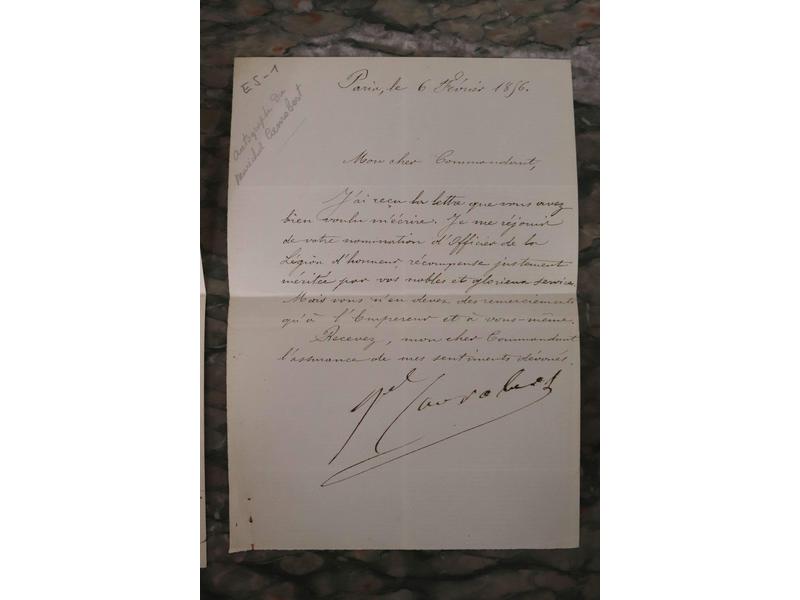 E S-1
autographe du
Maréchal Canrobert
Paris, le 6 Février 1856.
Mon cher Commandant,
J'ai reçu la lettre que vous avez
bien voulu m'écrire. Je me réjouis
de votre nomination d'Officier de la
Légion d'honneur, récompense justement
méritée par vos nobles et glorieux services.
Mais vous n'en devez des remerciements
qu'à l'Empereur et à vous-même.
Recevez, mon cher Commandant
l'assurance de mes sentiments dévoués.
Gal Canrobert